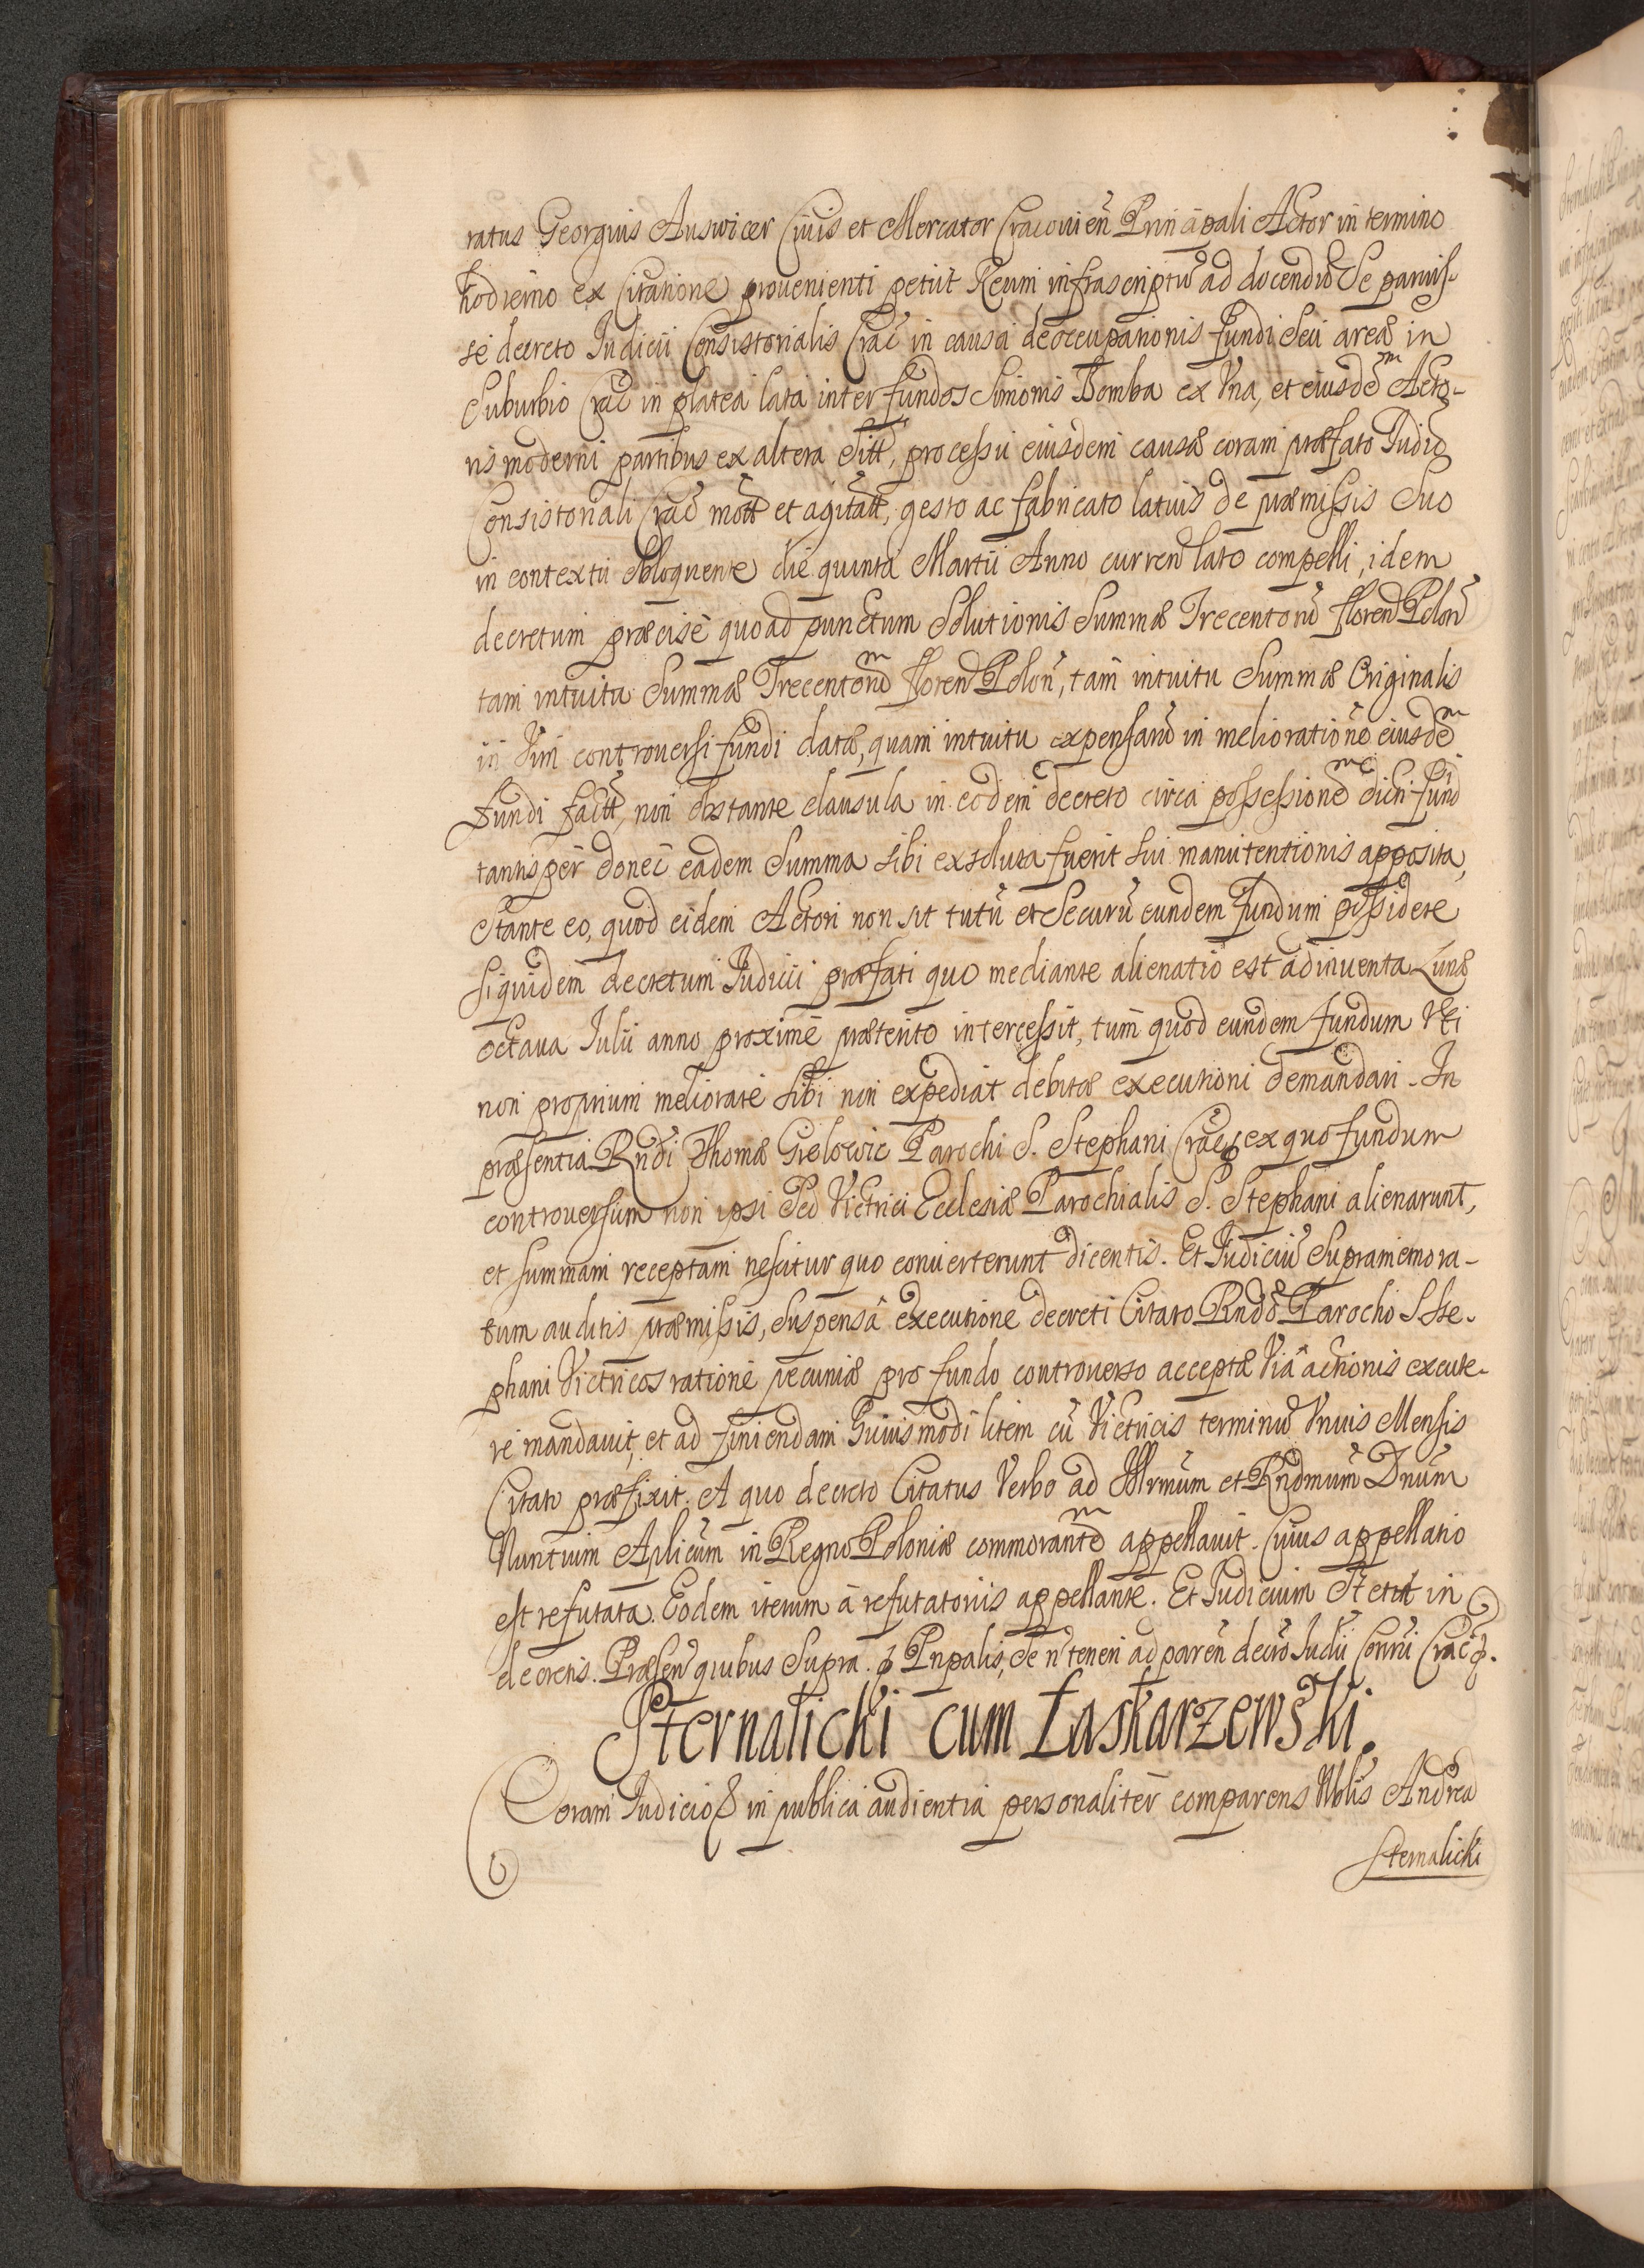 ratus Georgius Auswicer Ciuis et Mercator Cracouien̄ Principali Actor in termino
hodierno ex Citatione prouenienti petiit Reum infrascriptū ad docendū Se paruis-
se decreto Iudicii Consistorialis Crac̄ in causa deoccupationis fundi seu areæ in
Suburbio Crac̄ in platea lata inter fundos Simonis Bomba ex Vna, et eiusdēm Acto-
ris moderni partibus ex altera Sitt̄, processu eiusdem causæ coram præfato Iudicio
Consistoriali Crac̄ mott̄ et agitatt̄, gesto ac fabricato latius de præmissis Suo
in contextu Obloquente die quinta Martii Anno curren̄ lato compelli, idem
decretum præcisè quoad punctum Solutionis Summæ Trecentorū floren̄ Polon̄
tam intuitu Summæ Trecentorūm floren̄ Polon̄, tam intuitu Summæ Originalis
in Vim controuersi fundi datæ, quam intuitu expensarū in melioratione eiusdēm
Fundi factt̄, non obstante clausula in eodem decreto circa possessionēm dicti fundi
tantisper donec eadem Summa sibi exsoluta fuerit sui manutentionis apposita,
Stante eo, quod eidem Actori non sit tutū et Securū eundem fundum possidere
siquidem decretum Iudicii præfati quo mediante alienatio est adinuenta Lunæ
octaua Iulii anno proximè præterito intercessit, tum quod eundem fundum Vti
non proprium meliorare sibi non expediat debitæ executioni demandari. In
præsentia Rndi Thomæ Grelowic Parochi S. Stephani Crac̄ ex quo fundum
controuersum non ipsi Sed Victrici Ecclesiæ Parochialis S. Stephani alienarunt,
et summam receptam nescitur quo conuerterunt dicentis. Et Iudiciū Supramemora-
tum auditis præmissis, Suspensâ executione decreti Citato Rndo Parocho S Ste-
phani Victricos ratione pecuniæ pro fundo controuerso acceptæ Viâ actionis excute-
re mandauit, et ad finiendam huiusmodi litem cū Victricis terminū Vnius Mensis
Citato præfixit. A quo decreto Citatus Verbo ad Illrmum et Rndmum Dnum
Nuntium Aplicum in Regno Poloniæ commorantēm appellauit. Cuius appellatio
est refutata. Eodem iterum à refutatoriis appellante. Et Iudicium Stetit in
decretis. Præsen̄ quibus Supra. Pnpalis, Se n̄ teneri ad paren̄ decro Iudii Conrii Crac̄
Sternalicki cum Łaskarzewski.
Coram Iudicio in publica audientia personaliter comparens Nblis Andrea
Sternalicki